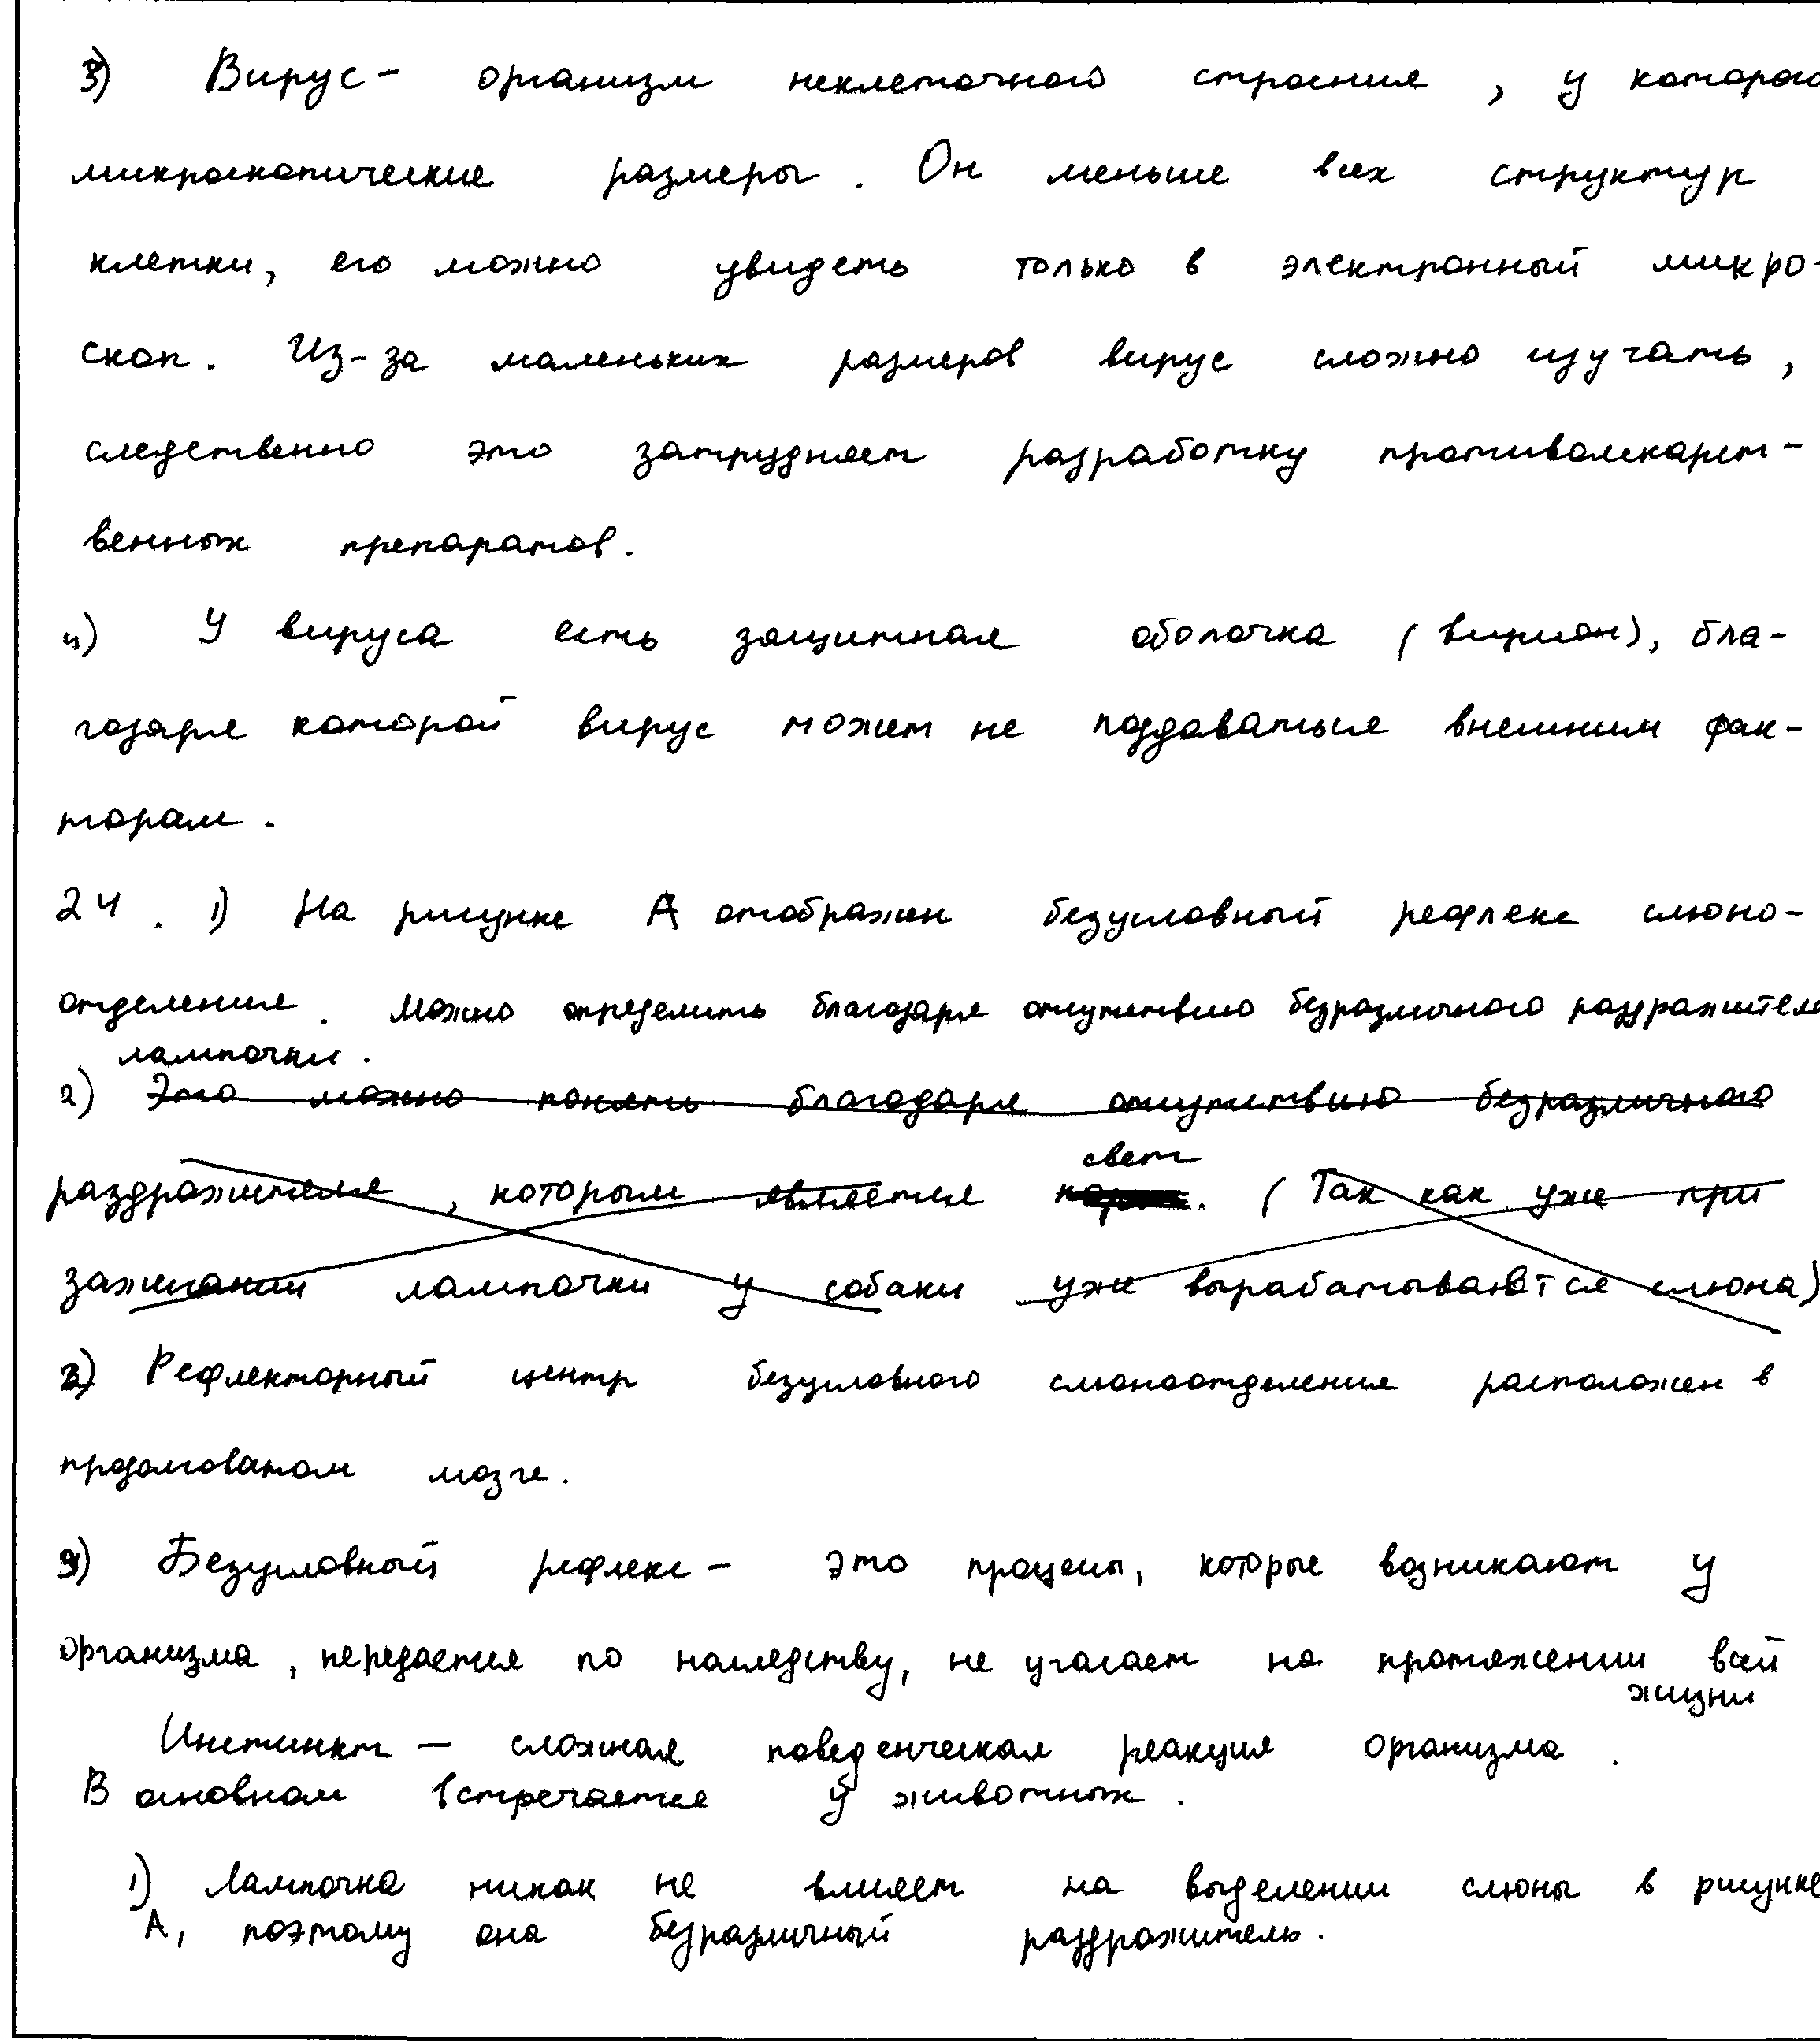 3) Вирус - организм неклеточной строения, у которого
микроскопические размеры. Он меньше всех структур
клетки, его можно увидеть только в электронный микро-
скоп. Из-за маленьких размеров вирус сложно изучать,
следственно это затрудняет разработку противолекарст-
венных препаратов.
4) У вируса есть защитная оболочка (вирион), бла-
годаря которой вирус может не поддаваться внешним фак-
торам.
24. 1) На рисунке А отображен безусловный рефлекс слюно-
отделения. Можно определить благодаря отсутствию безразличного раздражителя
лампочки.
2) Это можно понять благодаря отсутствию безразличного
свет
раздражителя, которым является . (Так как уже при
зажигании лампочки у собаки уже вырабатываются слюна)
2) Рефлекторный центр безусловного слюноотделения расположен в
продолговатом мозге.
3) Безусловный рефлекс - это процессы, которые возникают у
организма, передается по наследству, не угасает на протяжении всей
жизни
Инстинкт - сложная поведенческая реакция организма.
В основном встречается у животных.
1) Лампочка никак не влияет на выделении слюны в рисунке
А, поэтому она безразличный раздражитель.